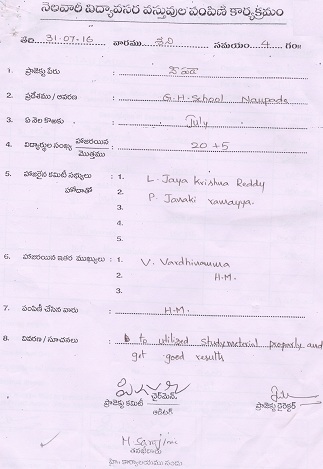 నెలవారీ విద్యావసర వస్తువుల పంపిణీ కార్యక్రమం
తేది 31-07-16 వారము శని సమయం 4 గం॥
1. ప్రాజెక్టు పేరు :
2. ప్రదేశము / ఆవరణ : G.H-School Naupada
3. ఏ నెల కొఱకు : July
4. విద్యార్థుల సంఖ్య హాజరయిన / మొత్తము : 20+5
5. హాజరైన కమిటీ సభ్యులు : 1. L. Jaya Krishna Reddy
హోదాతో 2. P. Janaki ramayya.
3.
4.
5.
6. హాజరయిన ఇతర ముఖ్యులు : 1. V. Vardhinamma
2. H.M.
3.
7. పంపిణీ చేసిన వారు : H.M.
8. వివరణ / సూచనలు : to utilized Studymeterial properly and
get good results
ప్రాజెక్టు కమిటీ చైర్మెన్ ప్రాజెక్టు డైరెక్టర్
ఆడిటర్
M. Sarojini